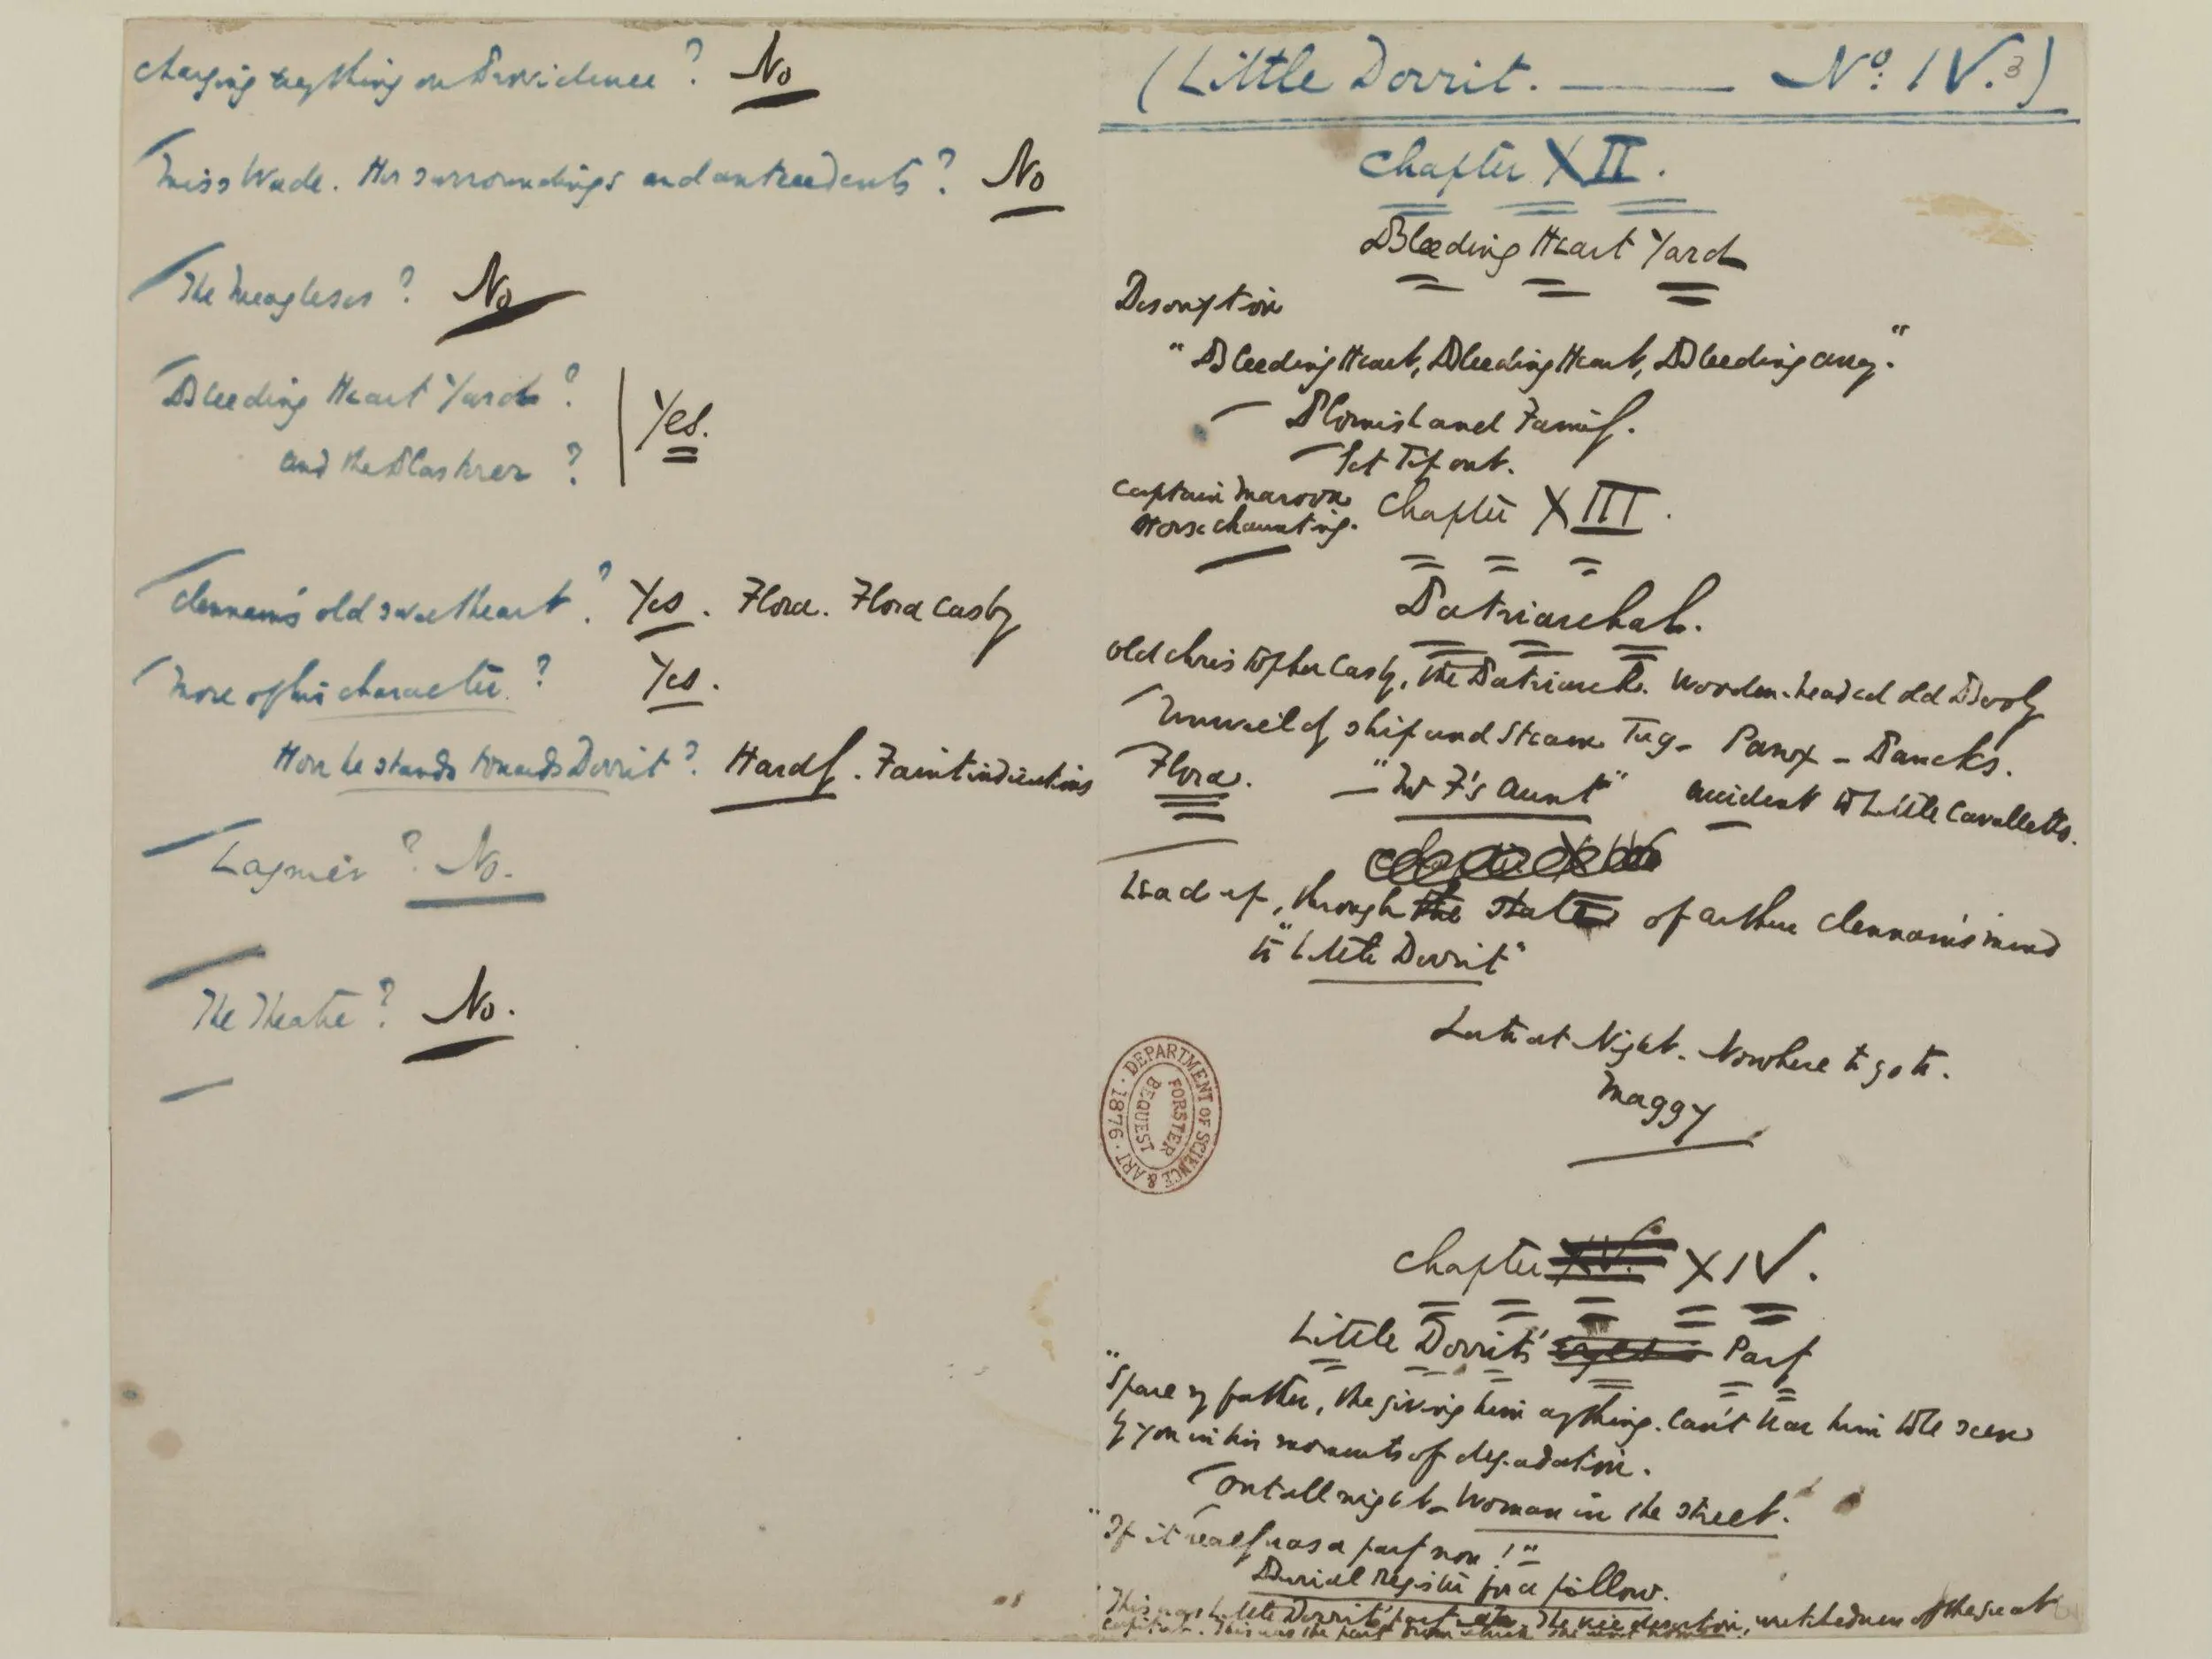 charging anything on Providence? No
Miss Wade. Her surroundings and antecedents? No
The Meagleses? No
Bleeding Heart Yard?
and the Plasterer?
Yes.
Clennam's old sweetheart? Yes. Flora. Flora Casby
More of his character? Yes.
How he stands towards Dorrit? Hardly. Faint indications
Lagnier? No.
The Theatre? No.
(Little Dorrit. —— No. IV. 3)
Chapter XII.
Bleeding Heart Yard
Description
"Bleeding Heart, Bleeding Heart, Bleeding away."
Plornish and Family.
Get Tip out.
Captain Maroon
Horse chaunting.
Chapter XIII.
Patriarchal.
Old Christopher Casby, the Patriarch. Wooden-headed old Booby
Unwieldy ship and Steam Tug - Panx - Pancks.
Flora. - "Mr F's Aunt" accident to Little Cavalletto.
Lead up, through the state of Arthur Clennam's mind
to "Little Dorrit"
Late at Night. Nowhere to go to.
Maggy
Chapter XV. XIV.
Little Dorrit's Party
"Spare my father, the giving him anything. Can't bear him to be seen
by you in his moments of degradation.
Out all night - Woman in the street.
"If it really was a party now!"
Burial Register for a pillow.
This was Little Dorrit's party. The vice desertion, wretchedness of the great
capital. This was the party from which she went home.
DEPARTMENT OF SCIENCE & ART · 1876 ·
FORSTER
BEQUEST